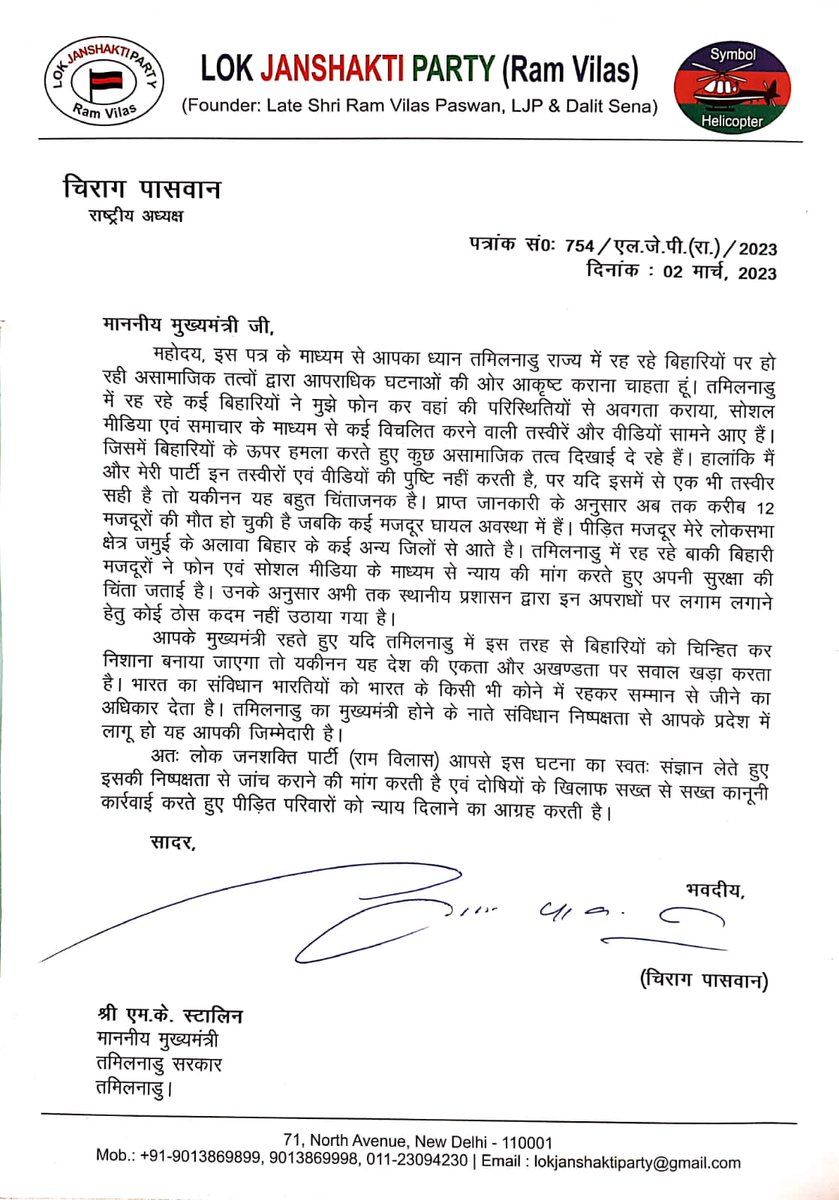 LOK JANSHAKTI PARTY
Ram Vilas
LOK JANSHAKTI PARTY (Ram Vilas)
(Founder: Late Shri Ram Vilas Paswan, LJP & Dalit Sena)
Symbol
Helicopter
चिराग पासवान
राष्ट्रीय अध्यक्ष
पत्रांक सं0: 754/एल.जे.पी.(रा.)/2023
दिनांक : 02 मार्च, 2023
माननीय मुख्यमंत्री जी,
महोदय, इस पत्र के माध्यम से आपका ध्यान तमिलनाडु राज्य में रह रहे बिहारियों पर हो
रही असामाजिक तत्वों द्वारा आपराधिक घटनाओं की ओर आकृष्ट कराना चाहता हूं। तमिलनाडु
में रह रहे कई बिहारियों ने मुझे फोन कर वहां की परिस्थितियों से अवगता कराया, सोशल
मीडिया एवं समाचार के माध्यम से कई विचलित करने वाली तस्वीरें और वीडियों सामने आए हैं।
जिसमें बिहारियों के ऊपर हमला करते हुए कुछ असामाजिक तत्व दिखाई दे रहे हैं। हालांकि मैं
और मेरी पार्टी इन तस्वीरों एवं वीडियों की पुष्टि नहीं करती है, पर यदि इसमें से एक भी तस्वीर
सही है तो यकीनन यह बहुत चिंताजनक है। प्राप्त जानकारी के अनुसार अब तक करीब 12
मजदूरों की मौत हो चुकी है जबकि कई मजदूर घायल अवस्था में हैं। पीड़ित मजदूर मेरे लोकसभा
क्षेत्र जमुई के अलावा बिहार के कई अन्य जिलों से आते है। तमिलनाडु में रह रहे बाकी बिहारी
मजदूरों ने फोन एवं सोशल मीडिया के माध्यम से न्याय की मांग करते हुए अपनी सुरक्षा की
चिंता जताई है। उनके अनुसार अभी तक स्थानीय प्रशासन द्वारा इन अपराधों पर लगाम लगाने
हेतु कोई ठोस कदम नहीं उठाया गया है।
आपके मुख्यमंत्री रहते हुए यदि तमिलनाडु में इस तरह से बिहारियों को चिन्हित कर
निशाना बनाया जाएगा तो यकीनन यह देश की एकता और अखण्डता पर सवाल खड़ा करता
है। भारत का संविधान भारतियों को भारत के किसी भी कोने में रहकर सम्मान से जीने का
अधिकार देता है। तमिलनाडु का मुख्यमंत्री होने के नाते संविधान निष्पक्षता से आपके प्रदेश में
लागू हो यह आपकी जिम्मेदारी है।
अतः लोक जनशक्ति पार्टी (राम विलास) आपसे इस घटना का स्वतः संज्ञान लेते हुए
इसकी निष्पक्षता से जांच कराने की मांग करती है एवं दोषियों के खिलाफ सख्त से सख्त कानूनी
कार्रवाई करते हुए पीड़ित परिवारों को न्याय दिलाने का आग्रह करती है।
सादर,
भवदीय,
(चिराग पासवान)
श्री एम.के. स्टालिन
माननीय मुख्यमंत्री
तमिलनाडु सरकार
तमिलनाडु।
71, North Avenue, New Delhi - 110001
Mob.: +91-9013869899, 9013869998, 011-23094230 | Email : lokjanshaktiparty@gmail.com